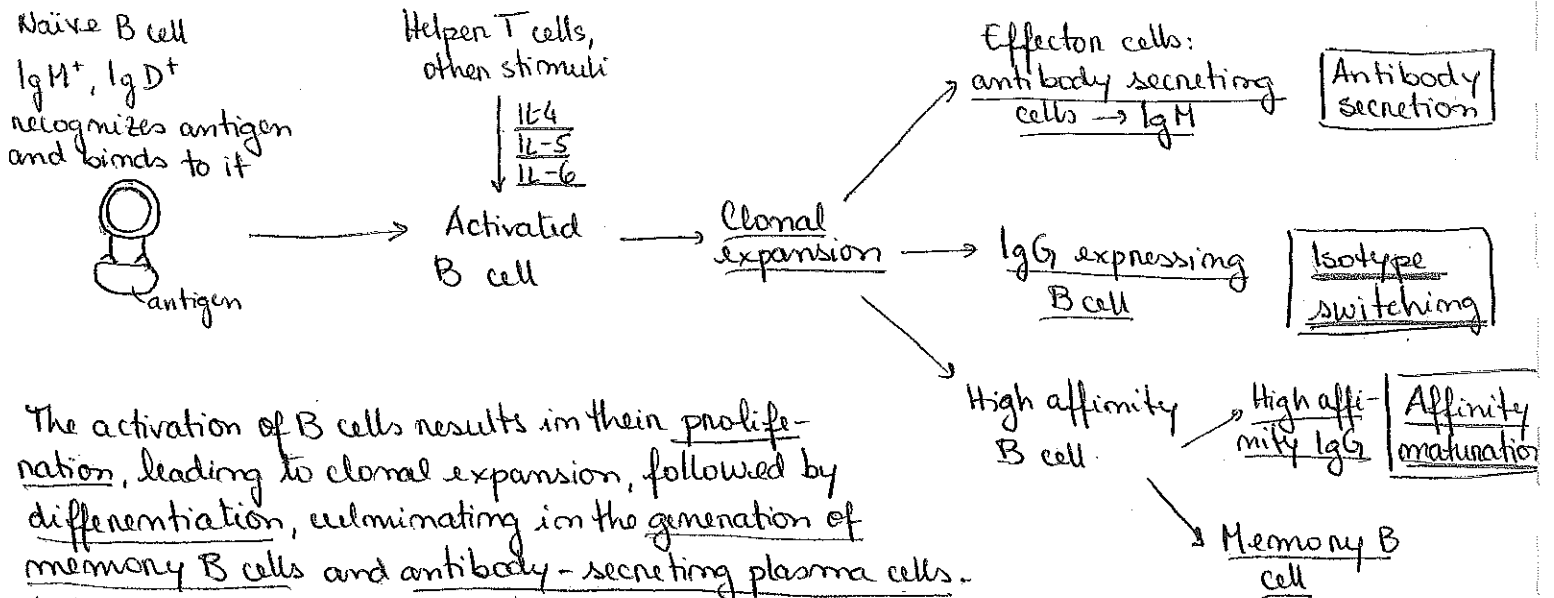 Naïve B cell
IgM⁺, IgD⁺
recognizes antigen
and binds to it
antigen
Helper T cells,
other stimuli
IL-4
IL-5
IL-6
Activated
B cell
Clonal
expansion
Effector cells:
antibody secreting
cells → IgM
Antibody
secretion
IgG expressing
B cell
Isotype
switching
High affinity
B cell
High affi-
nity IgG
Affinity
maturation
Memory B
cell
The activation of B cells results in their prolife-
ration, leading to clonal expansion, followed by
differentiation, culminating in the generation of
memory B cells and antibody-secreting plasma cells.